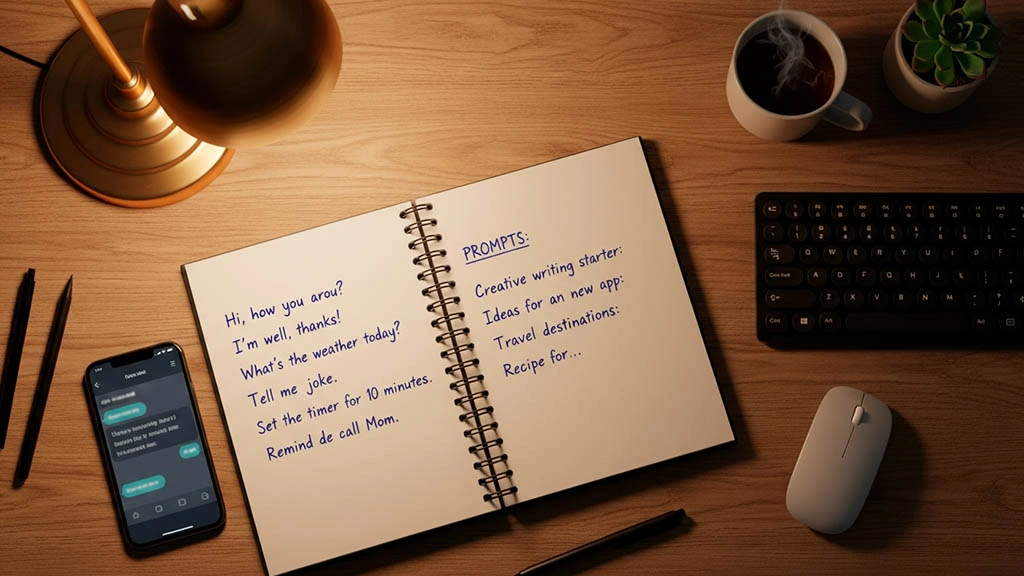 Hi, how you arou?
I'm well, thanks!
What's the weather today?
Tell me joke.
Set the timer for 10 minutes.
Remind de call Mom.
PROMPTS:
Creative writing starter:
Ideas for an new app:
Travel destinations:
Recipe for...